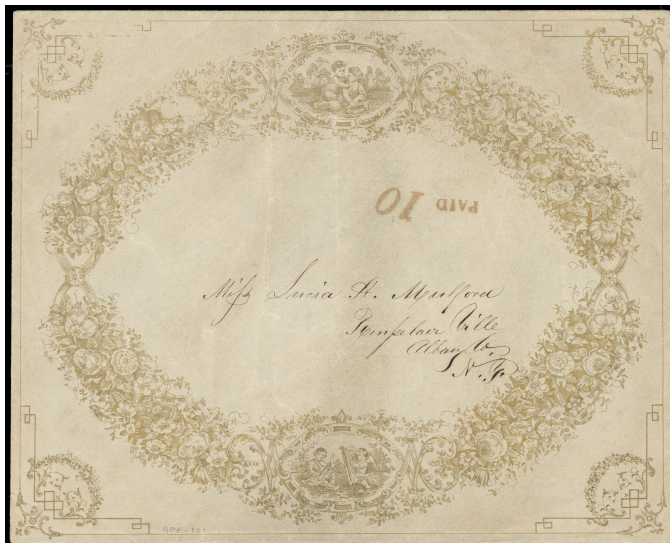 PAID 10
Miss Lucia H. Mulford
Rensselaer Ville
Albany Co.
N. Y.